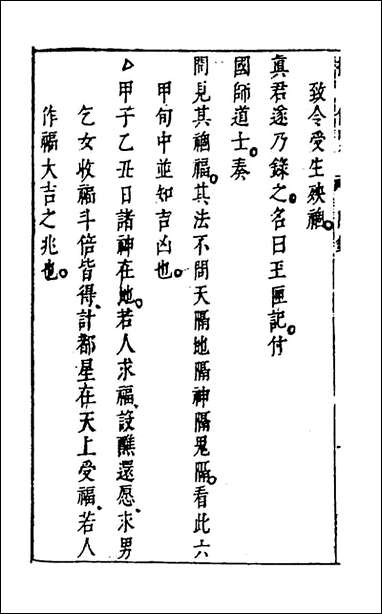 致令受生殃禍。
真君遂乃錄之。名曰玉匣記。付
國師道士。奏
問見其禍福。其法不問天隔地隔神隔鬼隔。看此六
甲旬中並知吉凶也。
甲子乙丑日諸神在地。若人求福、設醮還愿、求男
乞女收福斗倍皆得、計都星在天上受福、若人
作福大吉之兆也。